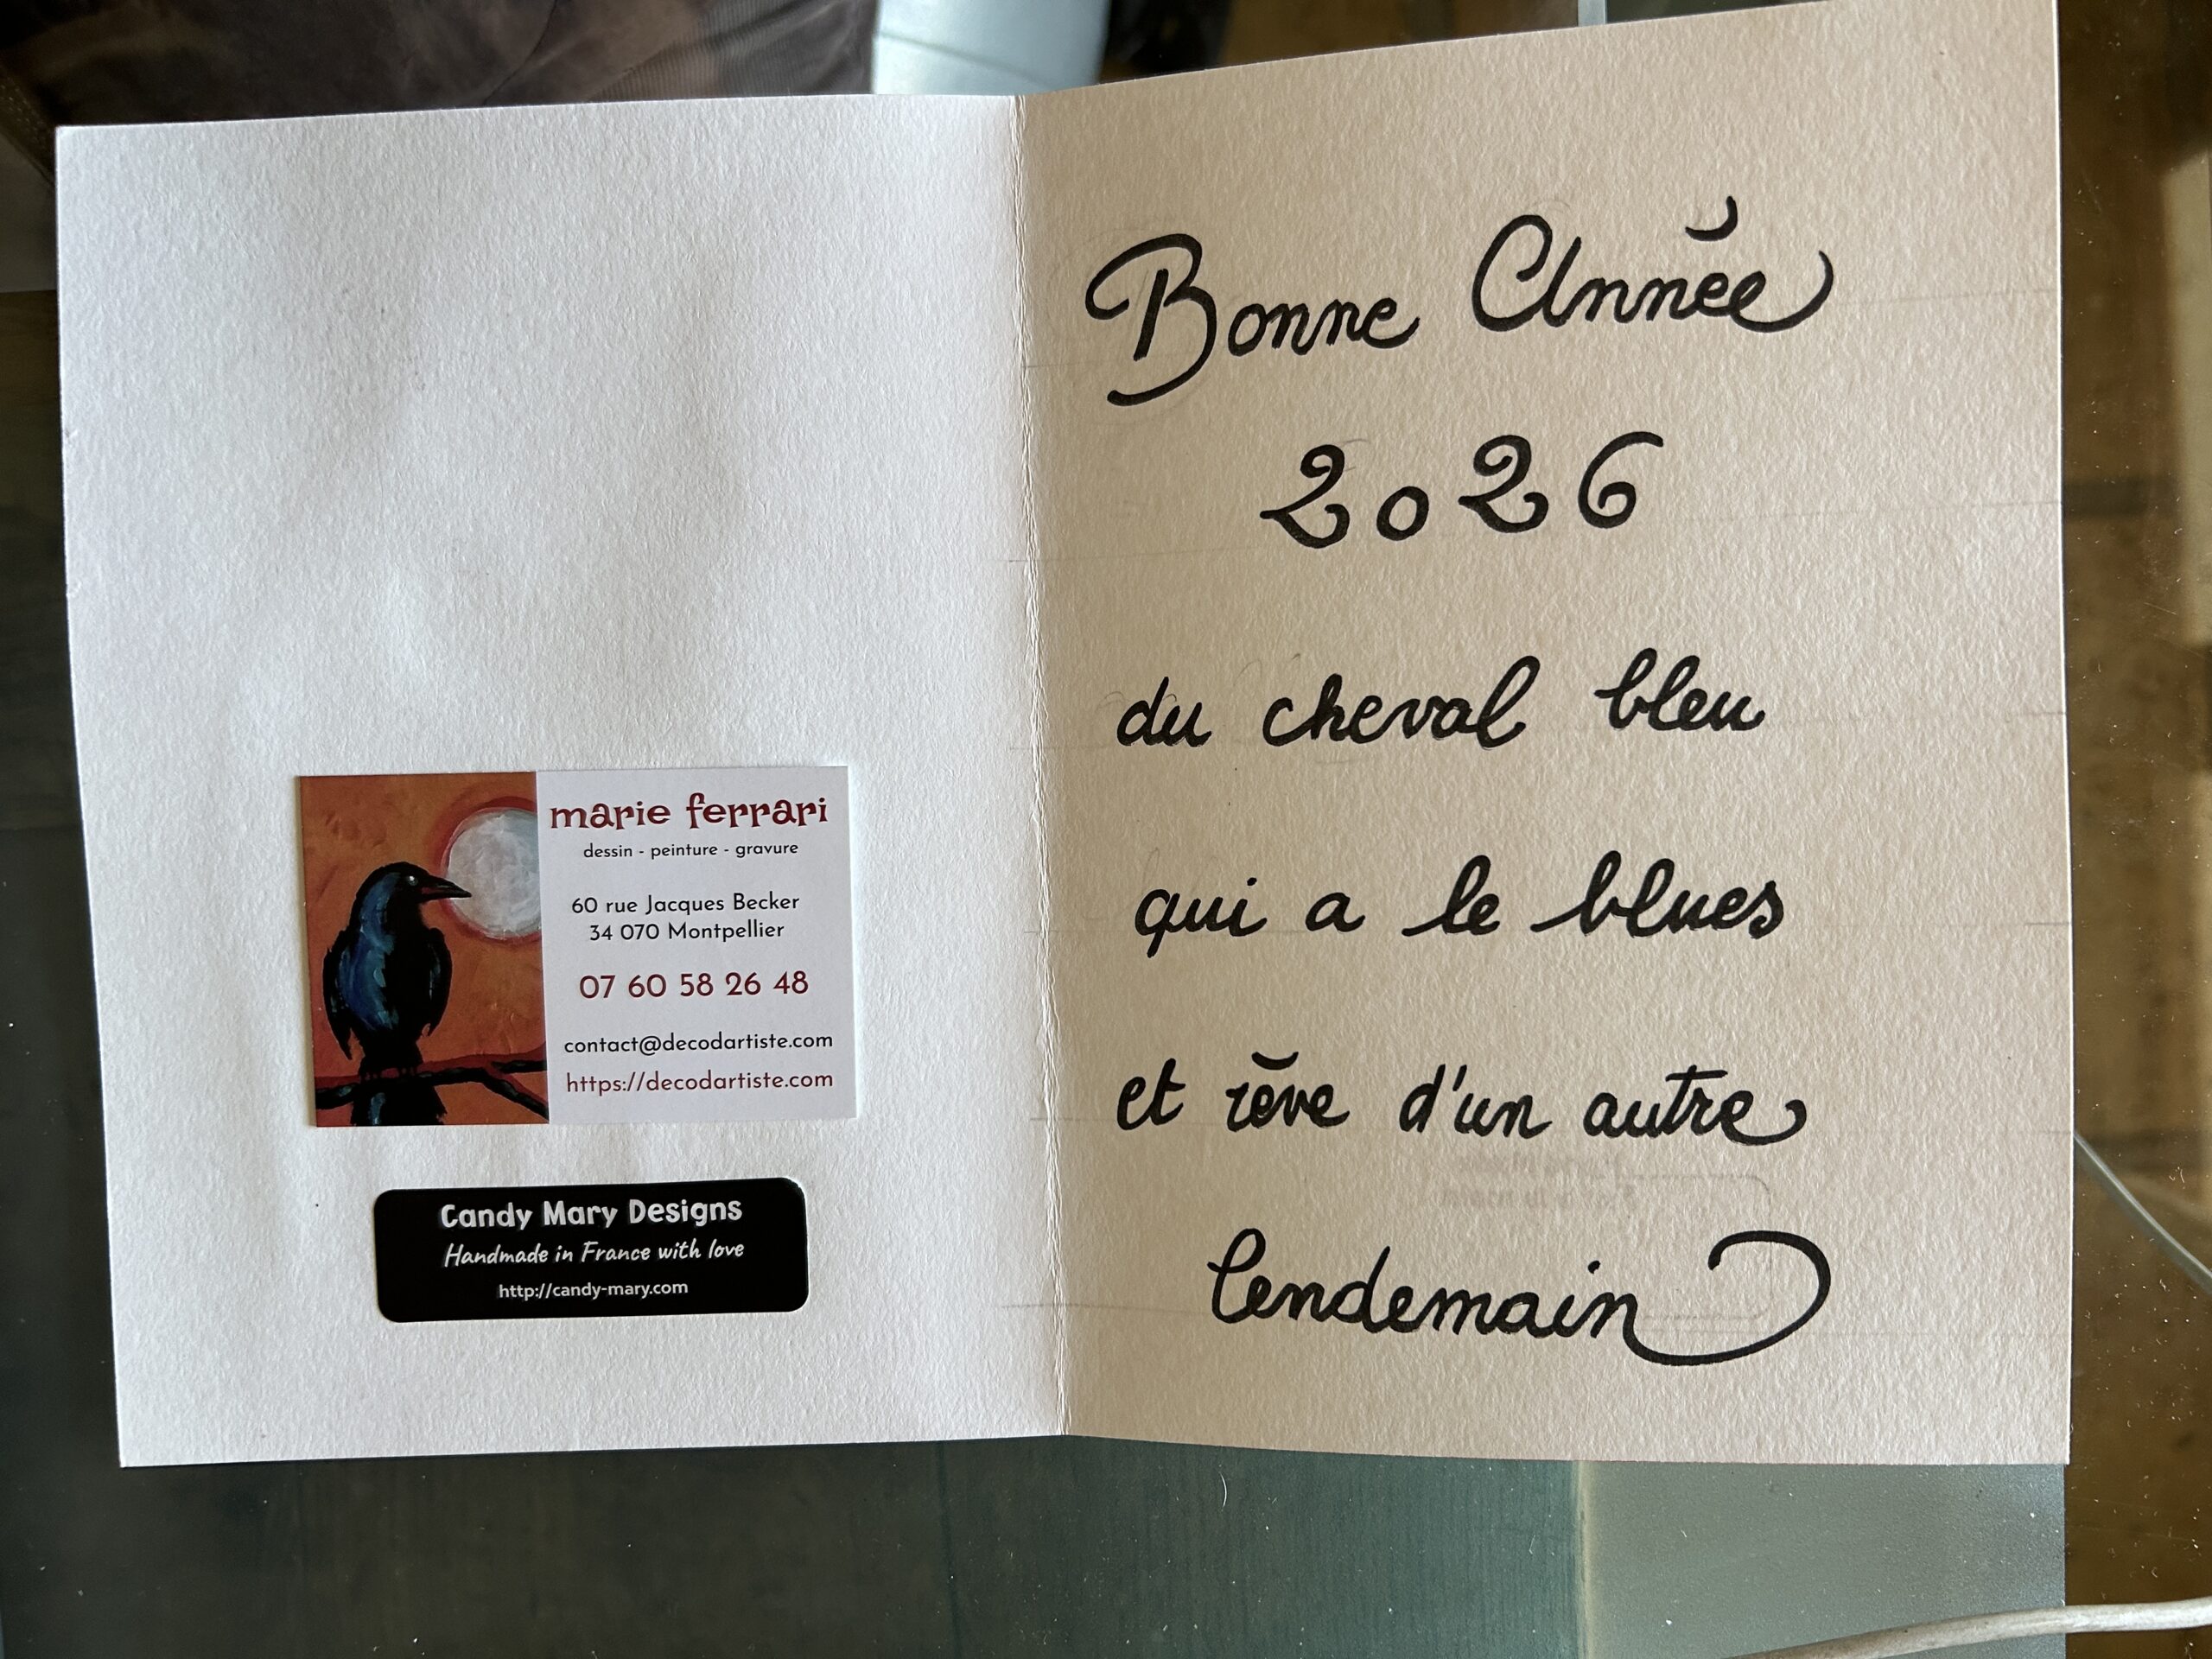 marie ferrari
dessin - peinture - gravure
60 rue Jacques Becker
34 070 Montpellier
07 60 58 26 48
contact@decodartiste.com
https://decodartiste.com
Candy Mary Designs
Handmade in France with love
http://candy-mary.com
Bonne Année
2026
du cheval bleu
qui a le blues
et rêve d'un autre
lendemain